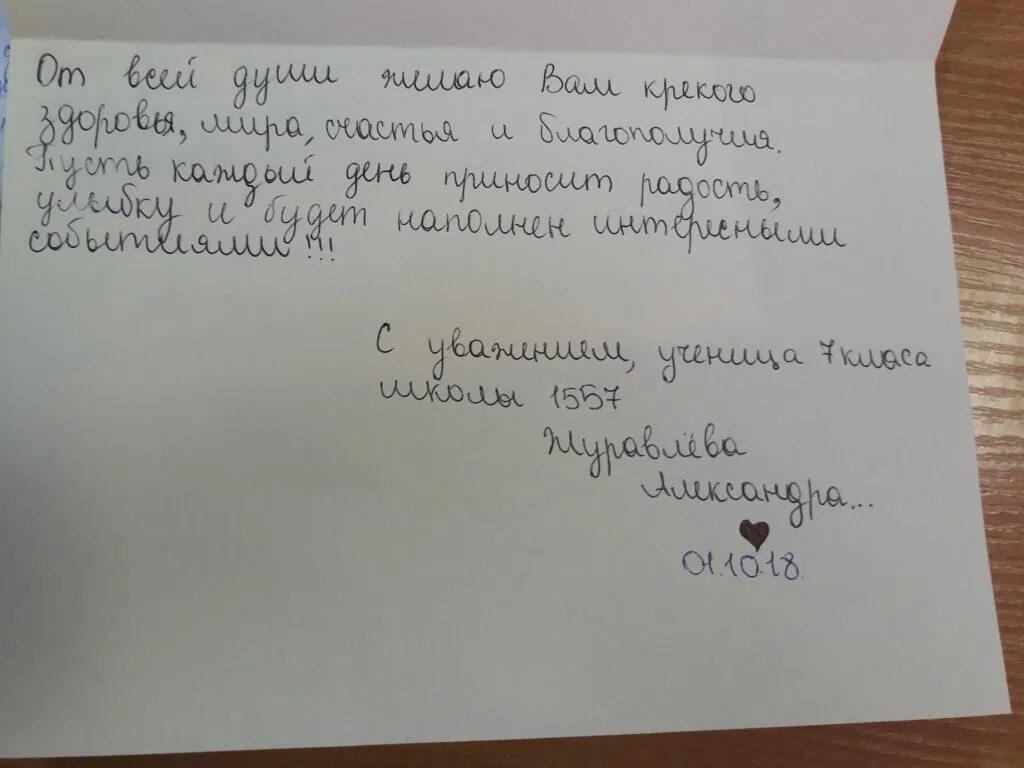 От всей души желаю Вам крекого
здоровья, мира, счастья и благополучия.
Пусть каждый день приносит радость,
улыбку и будет наполнен интересными
событиями!!!
С уважением, ученица 7 класа
школы 1557
Журавлёва
Александра...
01.10.18.